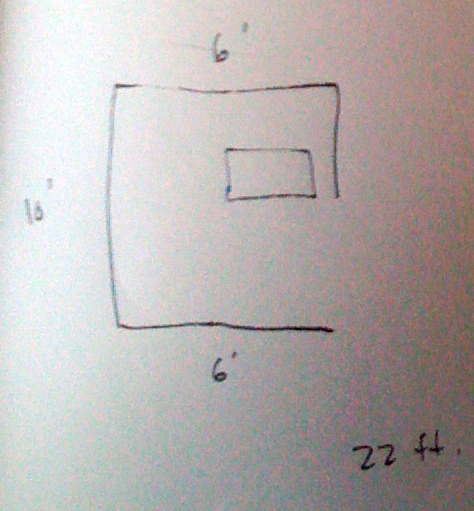 6'
10'
6'
22 ft.